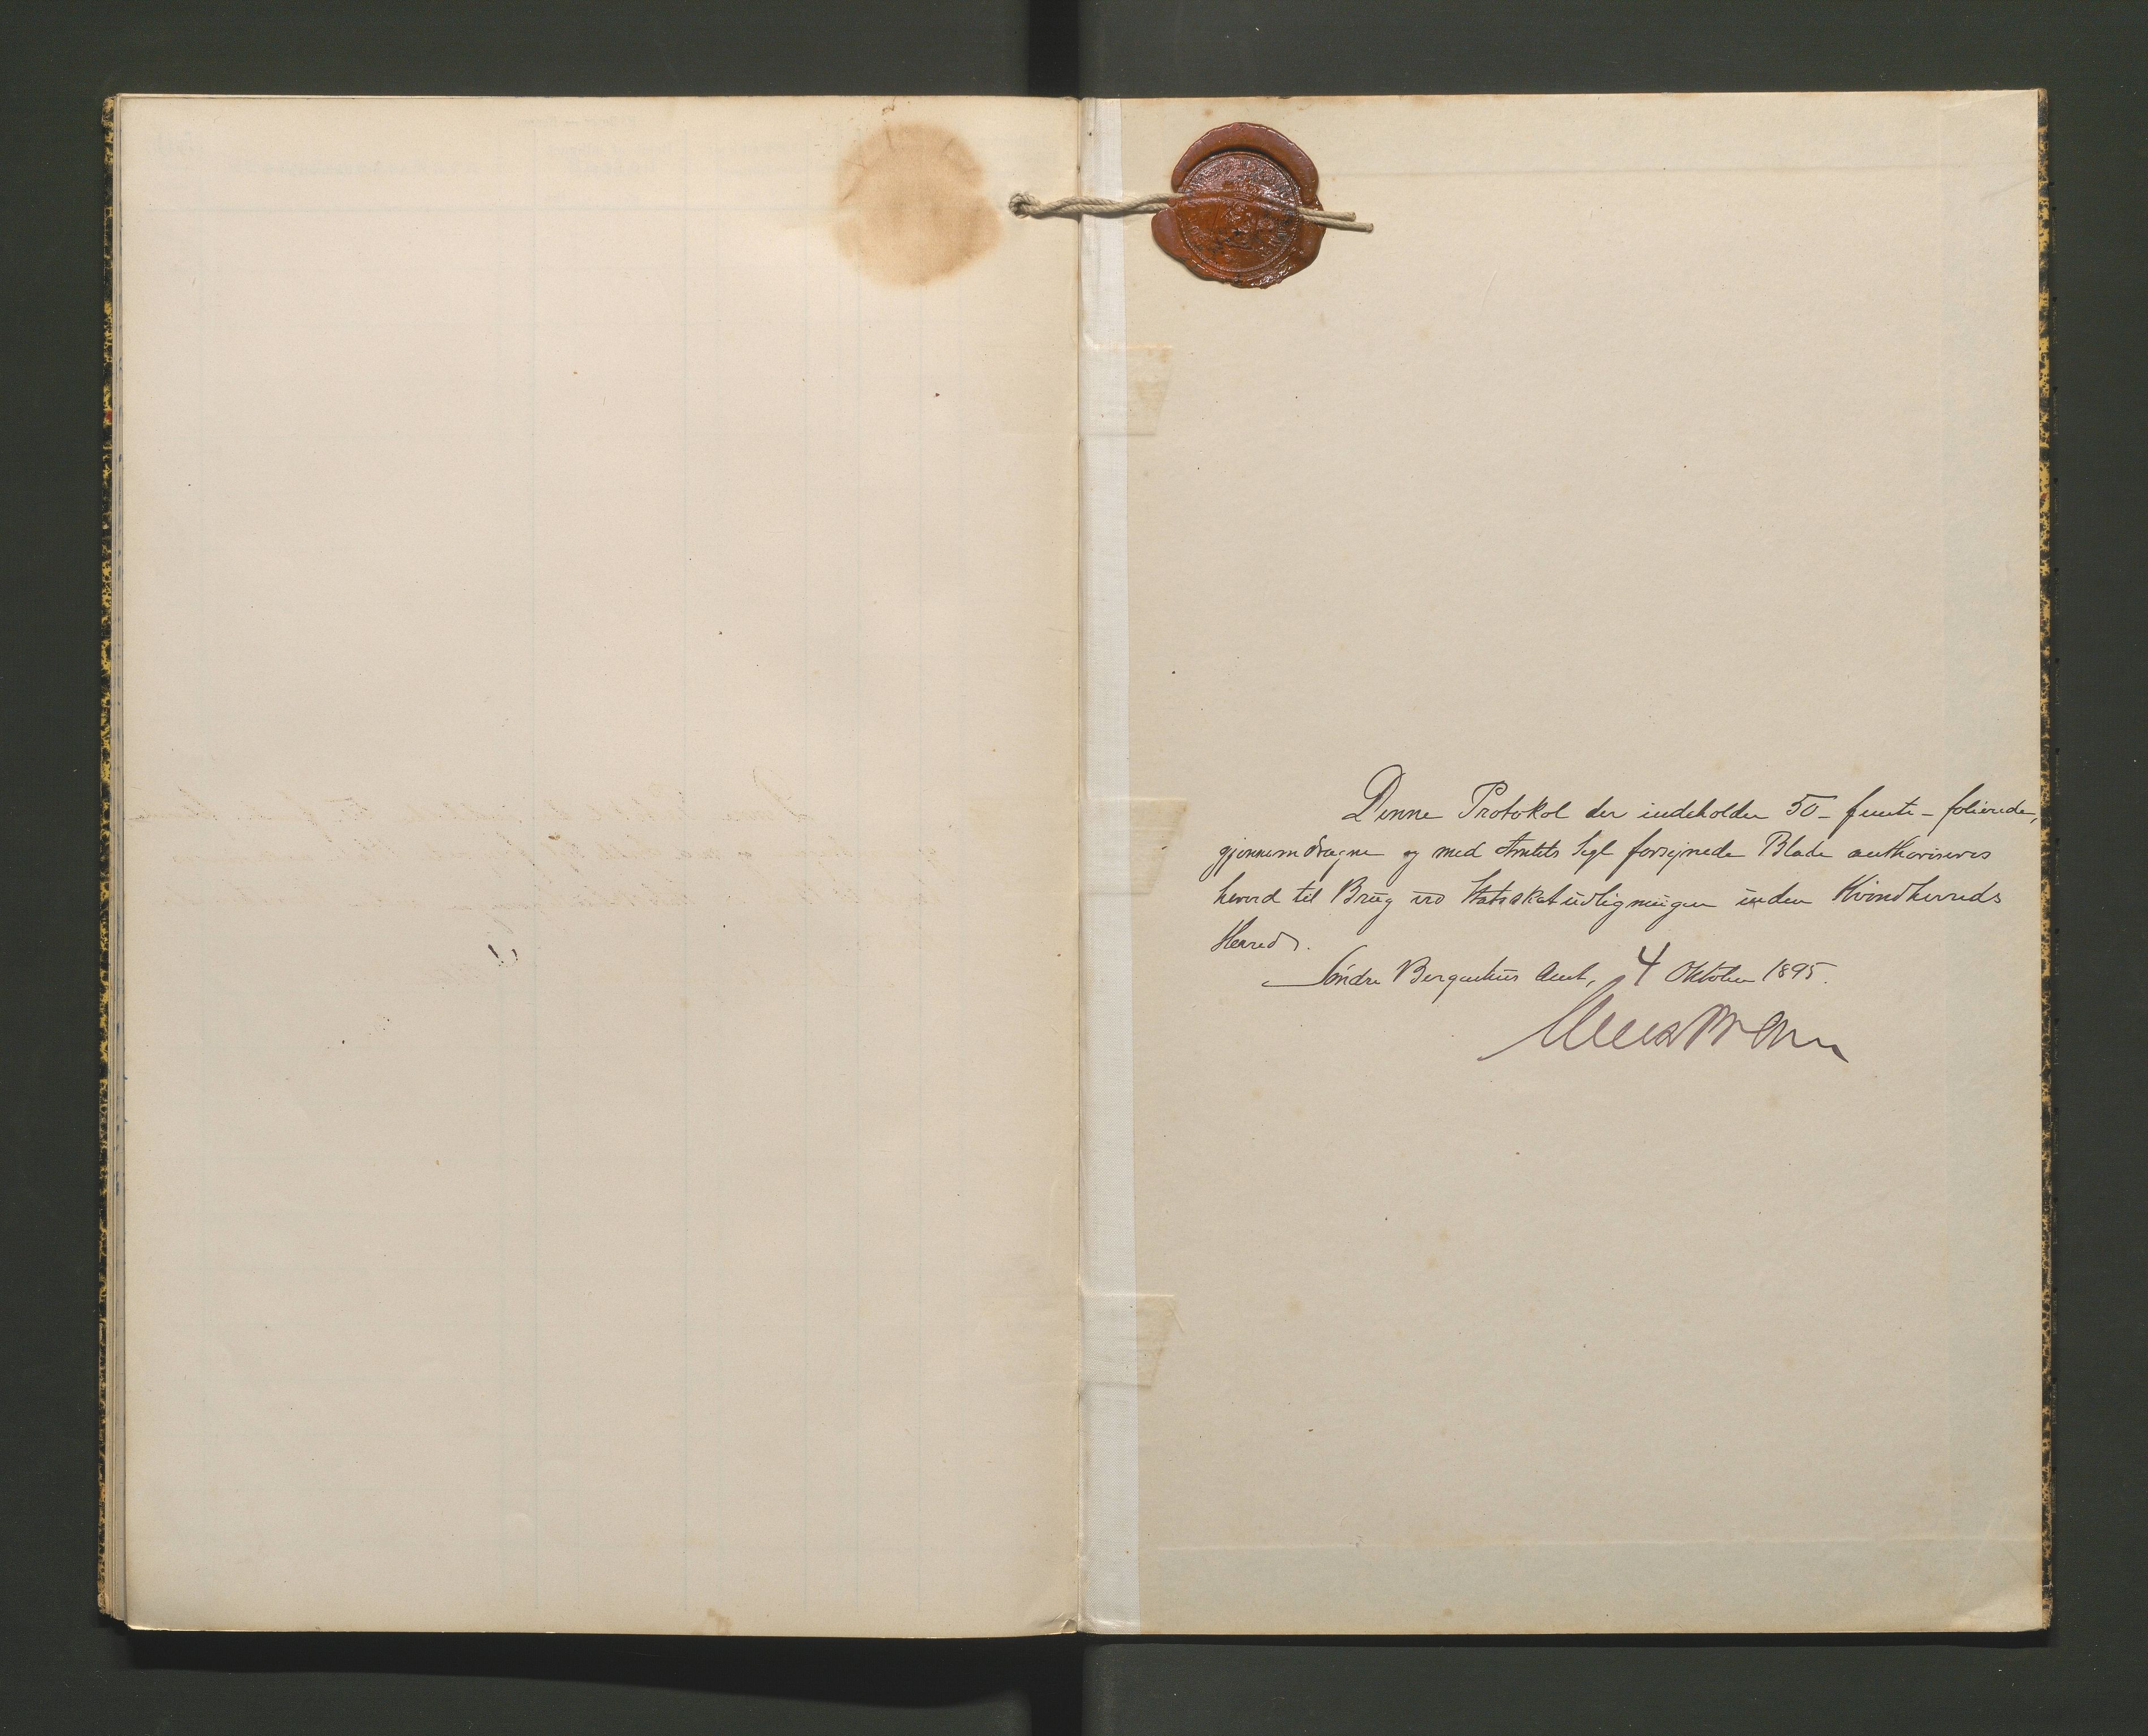 Denne Protokol der indeholder 50 - femti - folierede,
gjennemdragne og med Amtets Segl forsynede Blade authoriseres
herved til Brug ved Statsskatudligningen inden Kvindherreds
Herred.
Søndre Bergenhus Amt, 4 Oktober 1895.